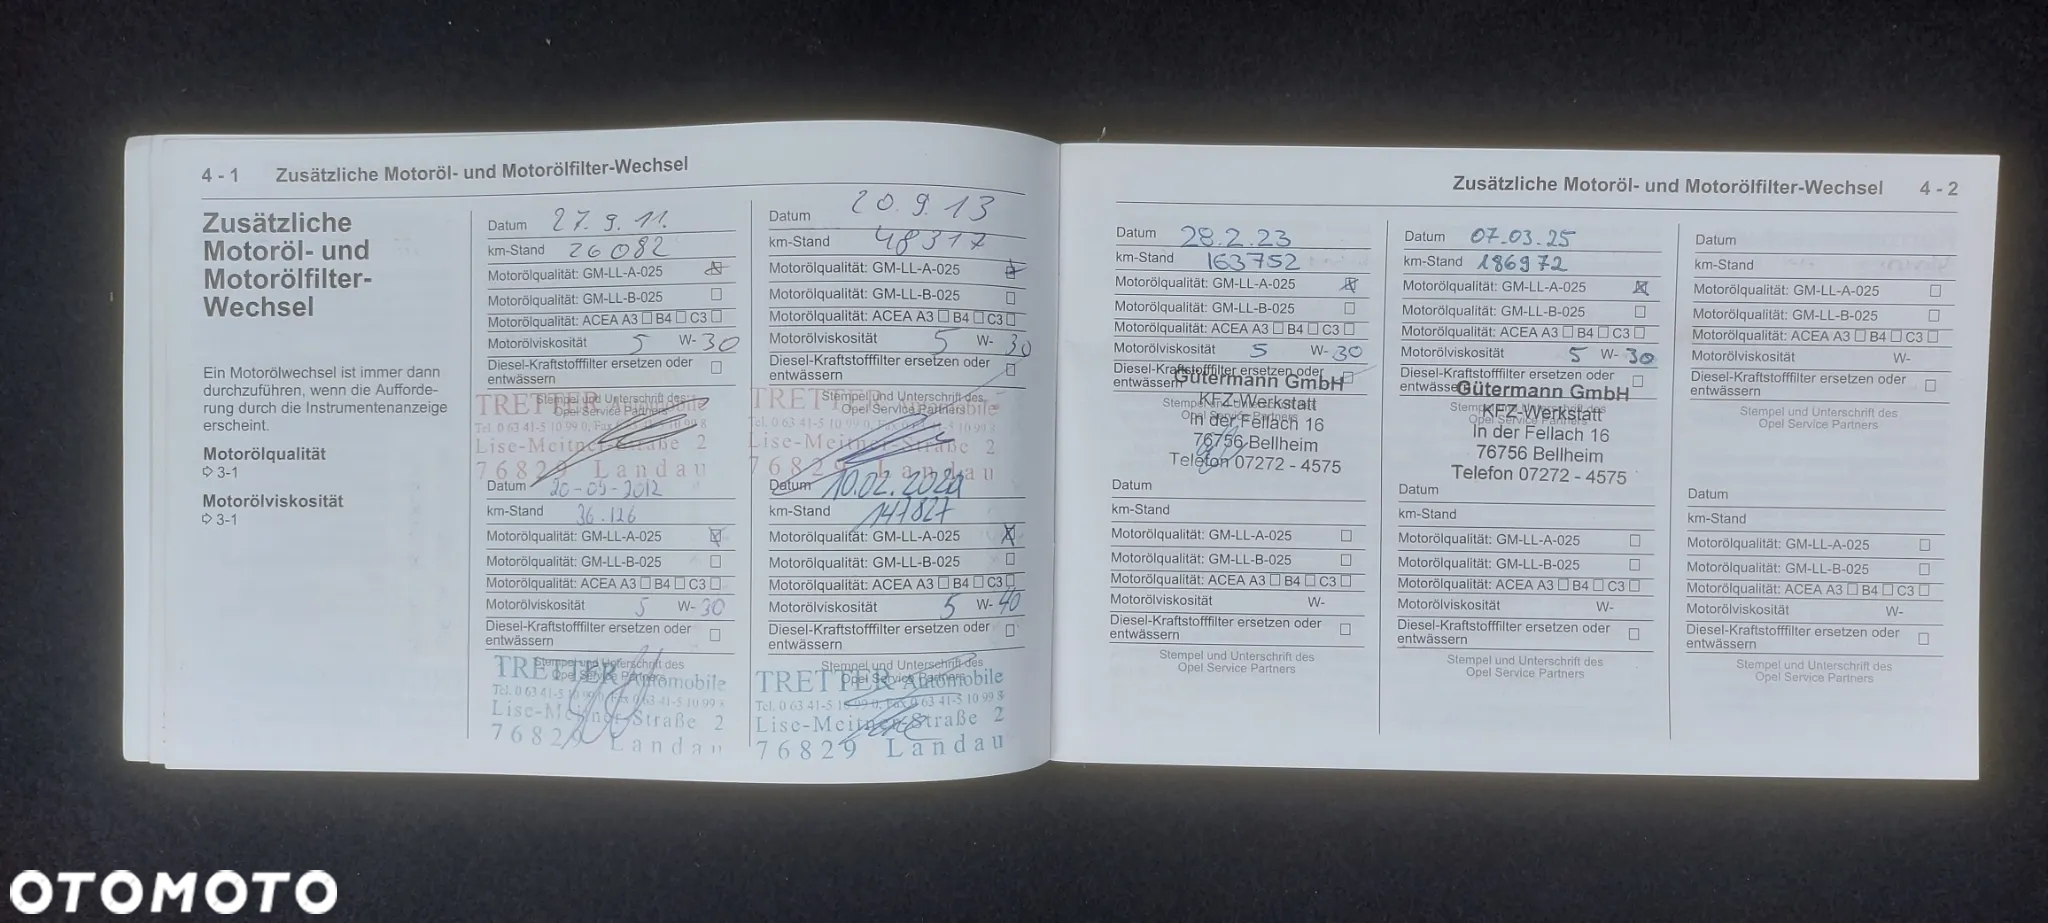 4 - 1 Zusätzliche Motoröl- und Motorölfilter-Wechsel
Zusätzliche
Motoröl- und
Motorölfilter-
Wechsel
Ein Motorölwechsel ist immer dann
durchzuführen, wenn die Aufforde-
rung durch die Instrumentenanzeige
erscheint.
Motorölqualität
⇨ 3-1
Motorölviskosität
⇨ 3-1
Datum 27.9.11.
km-Stand 26082
Motorölqualität: GM-LL-A-025 ☒
Motorölqualität: GM-LL-B-025 ☐
Motorölqualität: ACEA A3 ☐ B4 ☐ C3 ☐
Motorölviskosität 5 W-30
Diesel-Kraftstofffilter ersetzen oder ☐
entwässern
Stempel und Unterschrift des
Opel Service Partners
TRETTER Automobile
Tel. 0 63 41-5 10 99 0, Fax 0 63 41-5 10 99 8
Lise-Meitner-Straße 2
76829 Landau
Datum 20-09-2012
km-Stand 36.126
Motorölqualität: GM-LL-A-025 ☒
Motorölqualität: GM-LL-B-025 ☐
Motorölqualität: ACEA A3 ☐ B4 ☐ C3 ☐
Motorölviskosität 5 W-30
Diesel-Kraftstofffilter ersetzen oder ☐
entwässern
Stempel und Unterschrift des
Opel Service Partners
TRETTER Automobile
Tel. 0 63 41-5 10 99 0, Fax 0 63 41-5 10 99 8
Lise-Meitner-Straße 2
76829 Landau
Datum 20.9.13
km-Stand 48317
Motorölqualität: GM-LL-A-025 ☒
Motorölqualität: GM-LL-B-025 ☐
Motorölqualität: ACEA A3 ☐ B4 ☐ C3 ☐
Motorölviskosität 5 W-30
Diesel-Kraftstofffilter ersetzen oder ☐
entwässern
Stempel und Unterschrift des
Opel Service Partners
TRETTER Automobile
Tel. 0 63 41-5 10 99 0, Fax 0 63 41-5 10 99 8
Lise-Meitner-Straße 2
76829 Landau
Datum 10.02.
km-Stand 147827
Motorölqualität: GM-LL-A-025 ☒
Motorölqualität: GM-LL-B-025 ☐
Motorölqualität: ACEA A3 ☐ B4 ☐ C3 ☐
Motorölviskosität 5 W-40
Diesel-Kraftstofffilter ersetzen oder ☐
entwässern
Stempel und Unterschrift des
Opel Service Partners
TRETTER Automobile
Tel. 0 63 41-5 10 99 0, Fax 0 63 41-5 10 99 8
Lise-Meitner-Straße 2
76829 Landau
Zusätzliche Motoröl- und Motorölfilter-Wechsel 4 - 2
Datum 28.2.23
km-Stand 163752
Motorölqualität: GM-LL-A-025 ☒
Motorölqualität: GM-LL-B-025 ☐
Motorölqualität: ACEA A3 ☐ B4 ☐ C3 ☐
Motorölviskosität 5 W-30
Diesel-Kraftstofffilter ersetzen oder ☐
entwässern
Stempel und Unterschrift des
Opel Service Partners
Gütermann GmbH
KFZ-Werkstatt
In der Fellach 16
76756 Bellheim
Telefon 07272 - 4575
Datum
km-Stand
Motorölqualität: GM-LL-A-025 ☐
Motorölqualität: GM-LL-B-025 ☐
Motorölqualität: ACEA A3 ☐ B4 ☐ C3 ☐
Motorölviskosität W-
Diesel-Kraftstofffilter ersetzen oder ☐
entwässern
Stempel und Unterschrift des
Opel Service Partners
Datum 07.03.25
km-Stand 186972
Motorölqualität: GM-LL-A-025 ☒
Motorölqualität: GM-LL-B-025 ☐
Motorölqualität: ACEA A3 ☐ B4 ☐ C3 ☐
Motorölviskosität 5 W-30
Diesel-Kraftstofffilter ersetzen oder ☐
entwässern
Stempel und Unterschrift des
Opel Service Partners
Gütermann GmbH
KFZ-Werkstatt
In der Fellach 16
76756 Bellheim
Telefon 07272 - 4575
Datum
km-Stand
Motorölqualität: GM-LL-A-025 ☐
Motorölqualität: GM-LL-B-025 ☐
Motorölqualität: ACEA A3 ☐ B4 ☐ C3 ☐
Motorölviskosität W-
Diesel-Kraftstofffilter ersetzen oder ☐
entwässern
Stempel und Unterschrift des
Opel Service Partners
Datum
km-Stand
Motorölqualität: GM-LL-A-025 ☐
Motorölqualität: GM-LL-B-025 ☐
Motorölqualität: ACEA A3 ☐ B4 ☐ C3 ☐
Motorölviskosität W-
Diesel-Kraftstofffilter ersetzen oder ☐
entwässern
Stempel und Unterschrift des
Opel Service Partners
Datum
km-Stand
Motorölqualität: GM-LL-A-025 ☐
Motorölqualität: GM-LL-B-025 ☐
Motorölqualität: ACEA A3 ☐ B4 ☐ C3 ☐
Motorölviskosität W-
Diesel-Kraftstofffilter ersetzen oder ☐
entwässern
Stempel und Unterschrift des
Opel Service Partners
OTOMOTO